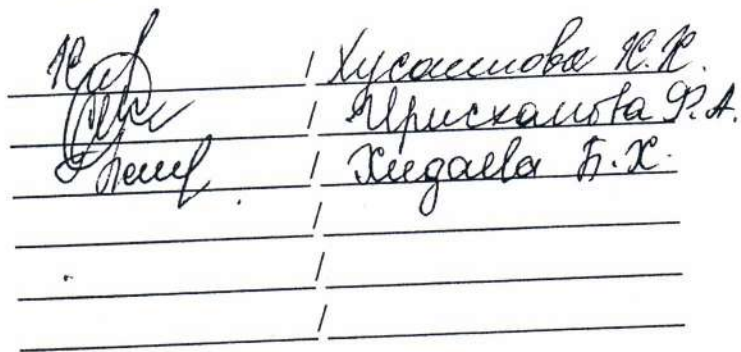 / Хусаинова К.К.
/ Ирисханова Ф.А.
/ Хидаева Б.Х.
/
/
/